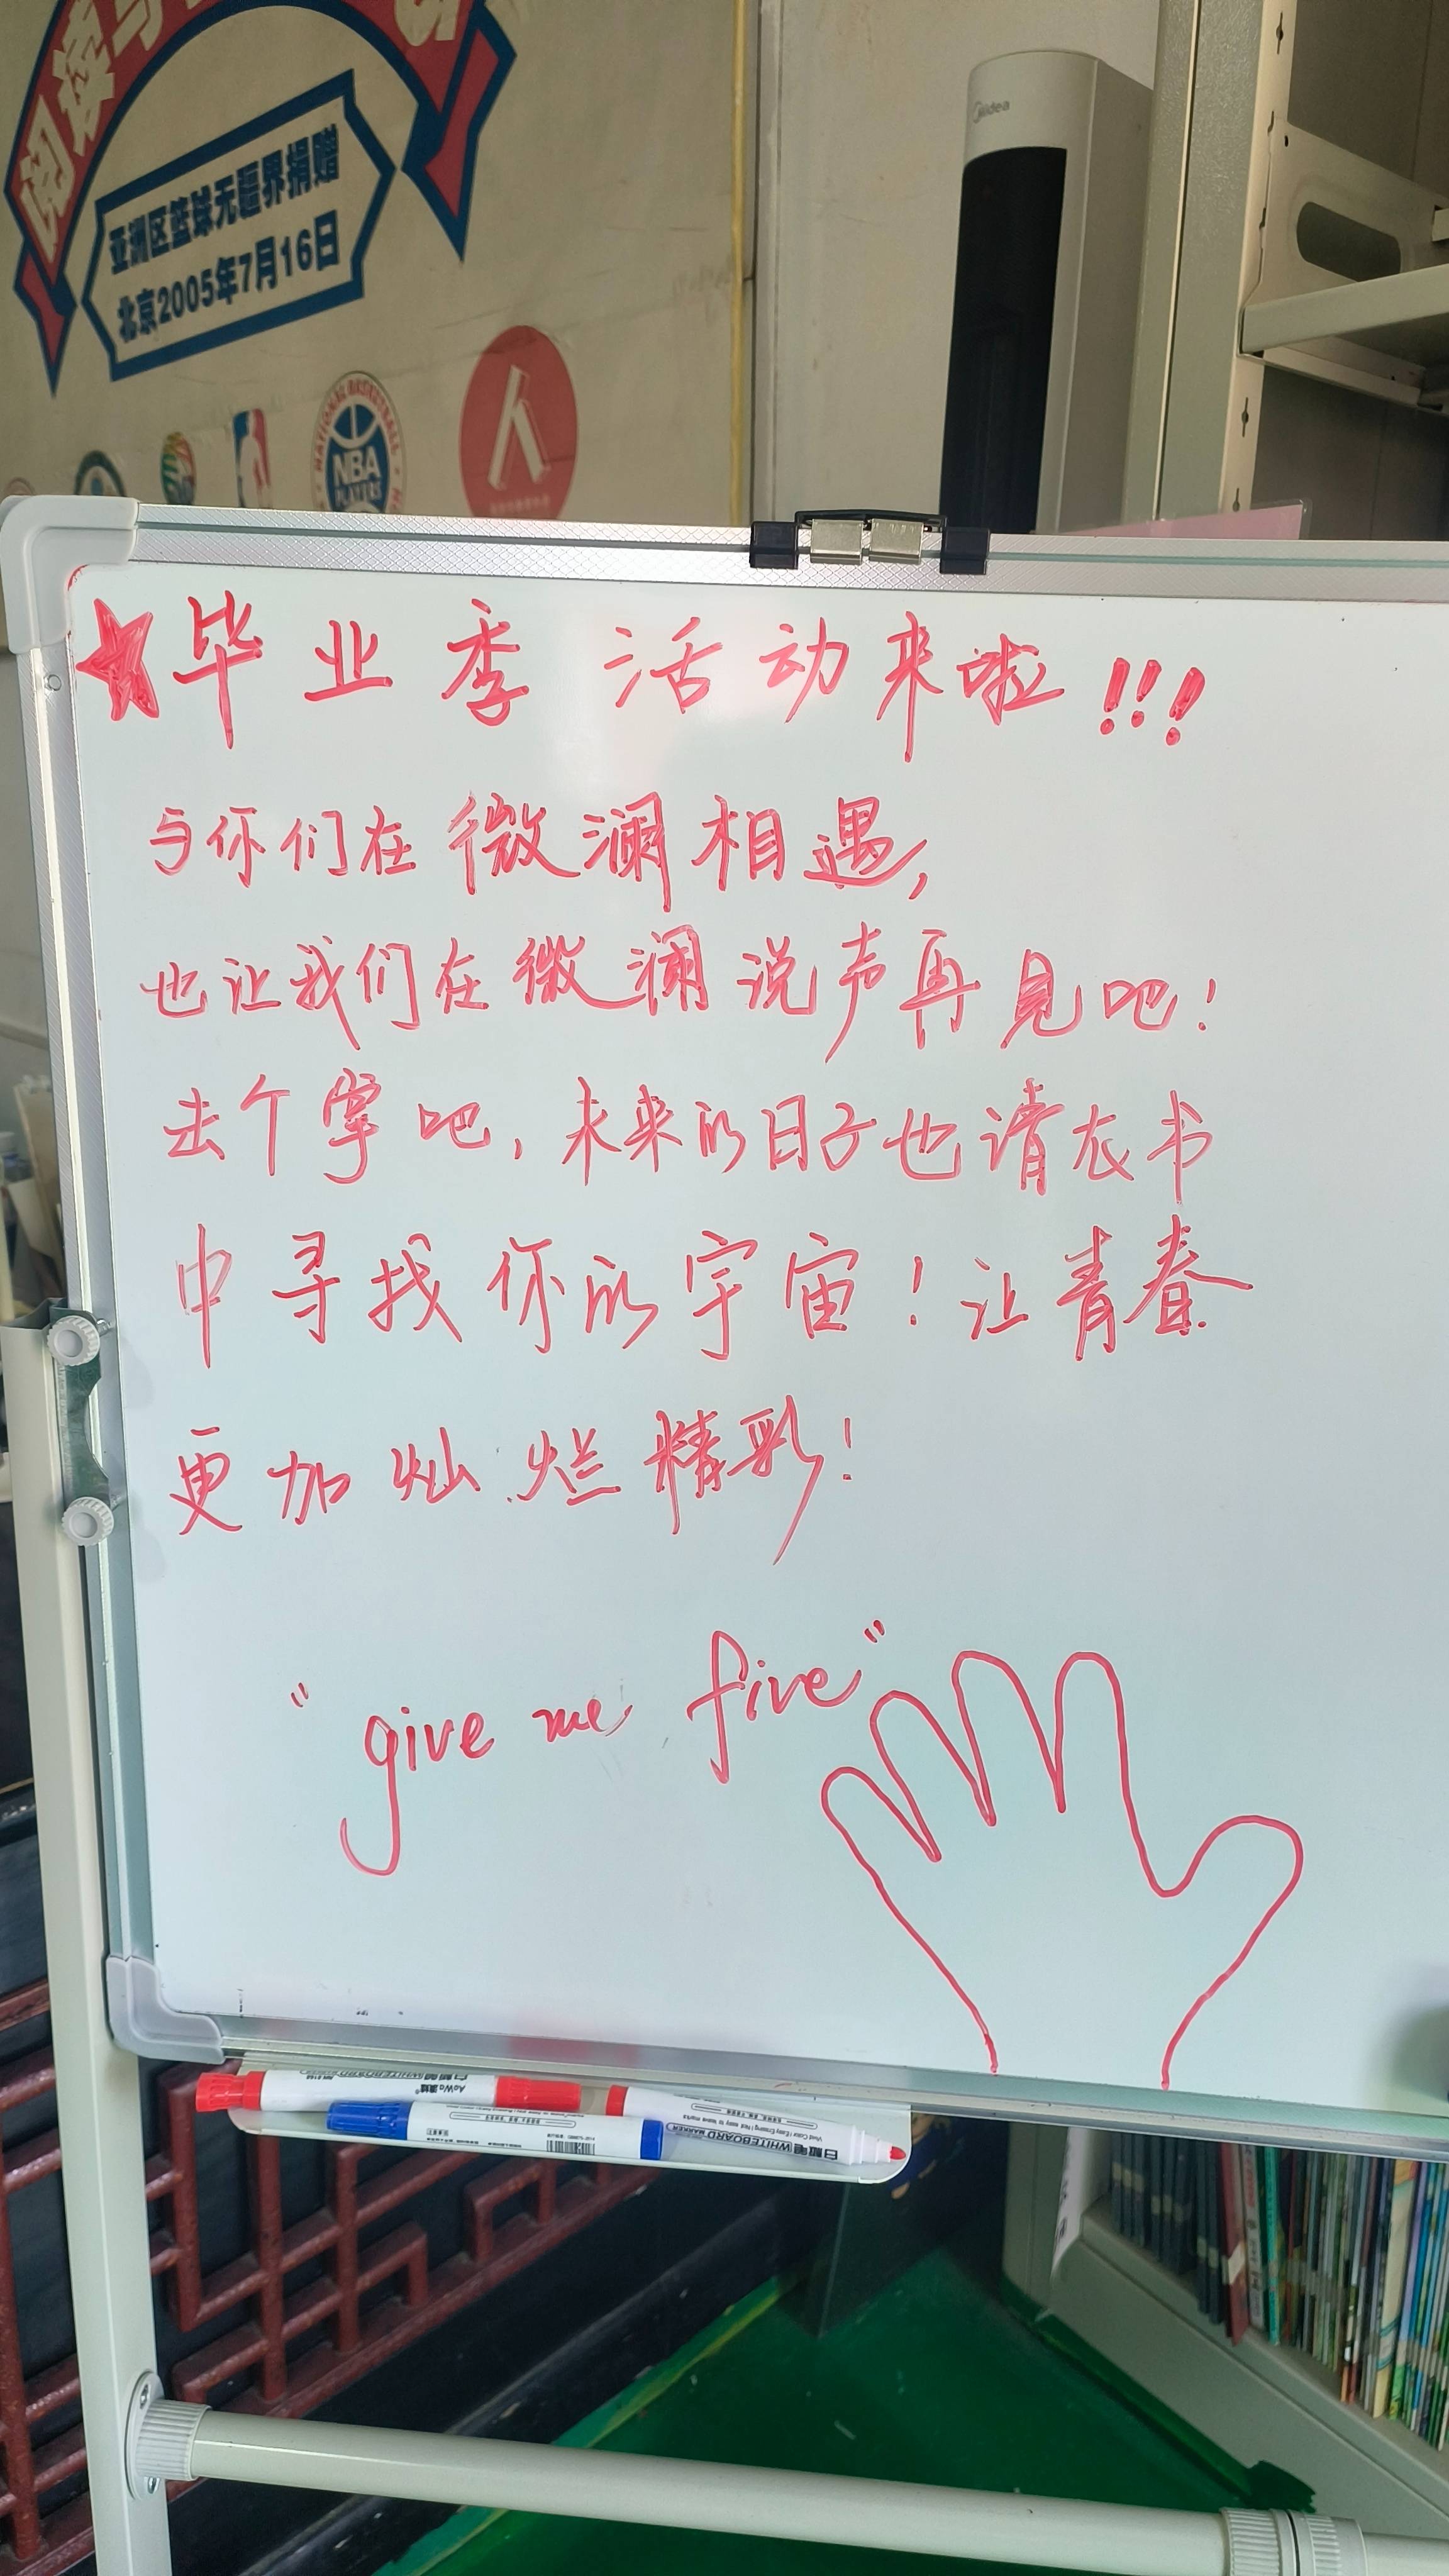 亚洲区篮球无疆界捐赠
北京2005年7月16日
NBA
Midea
★毕业季活动来啦!!!
与你们在微澜相遇,
也让我们在微澜说声再见吧!
击个掌吧,未来的日子也请在书
中寻找你的宇宙!让青春
更加灿烂精彩!
"give me five"
WHITEBOARD MARKER